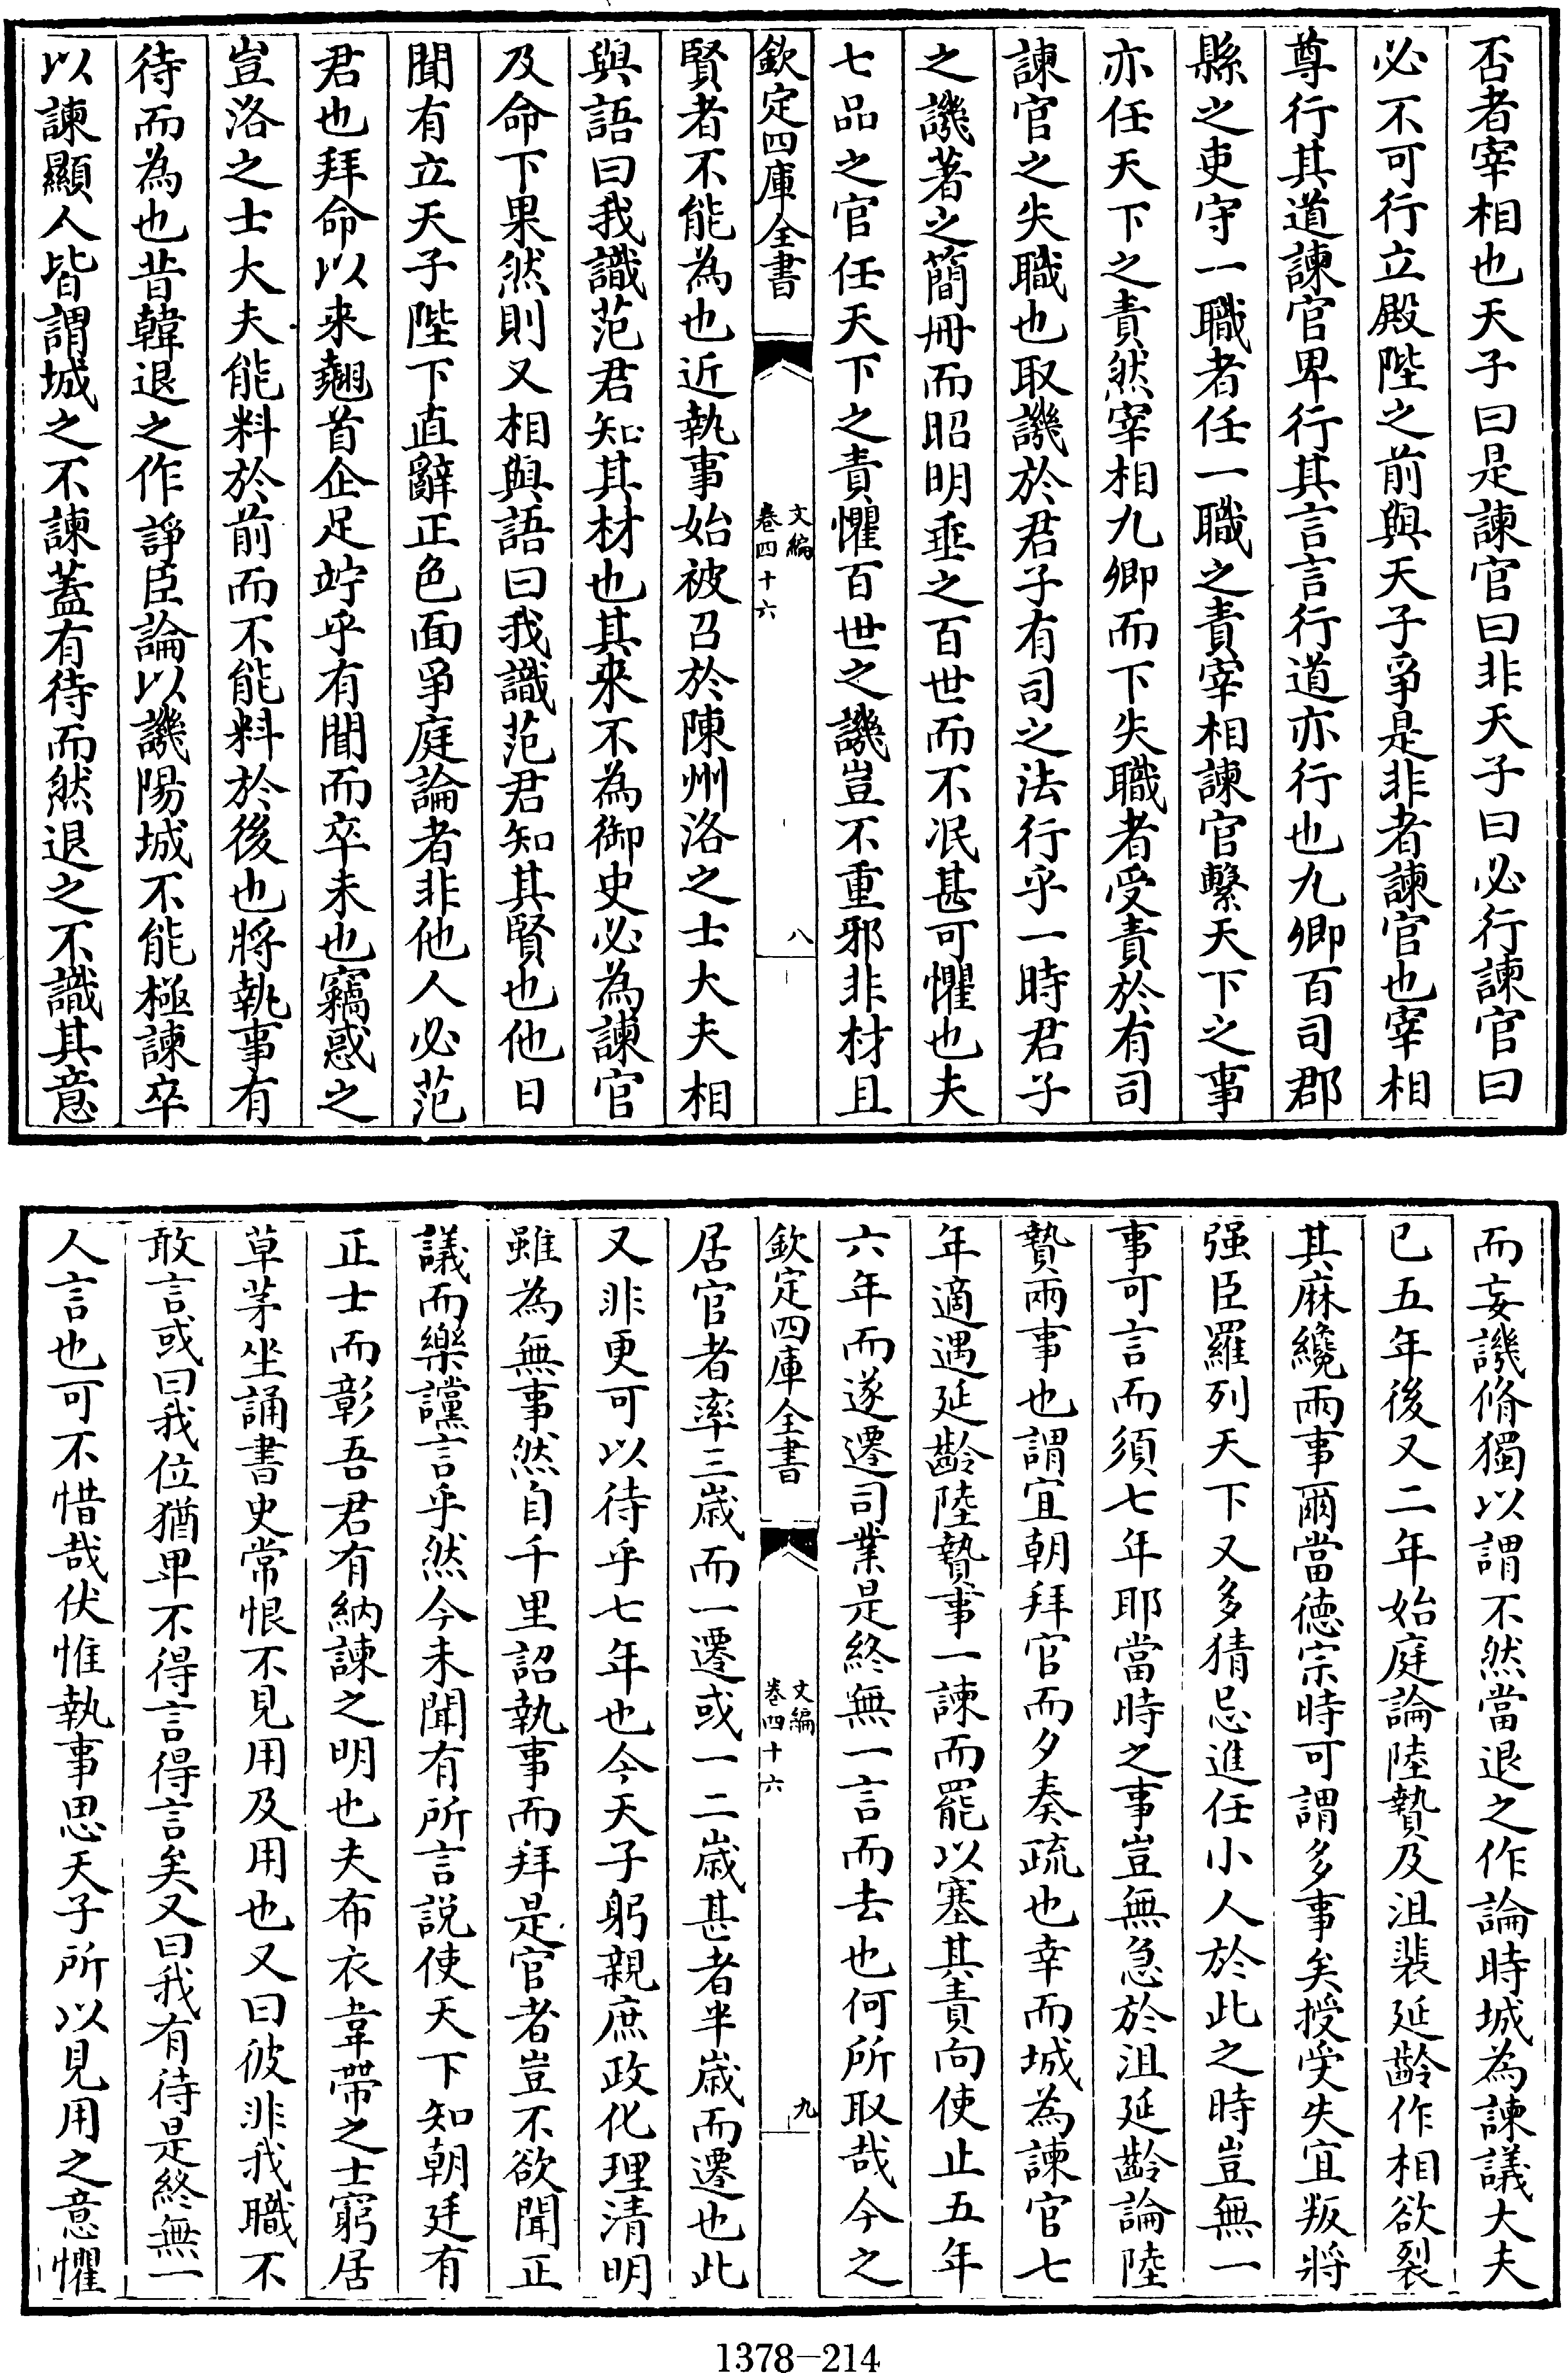 否者宰相也天子曰是諫官曰非天子曰必行諫官曰
必不可行立殿陛之前與天子爭是非者諫官也宰相
尊行其道諫官卑行其言言行道亦行也九卿百司郡
縣之吏守一職者任一職之責宰相諫官繫天下之事
亦任天下之責然宰相九卿而下失職者受責於有司
諫官之失職也取譏於君子有司之法行乎一時君子
之譏著之簡冊而昭明垂之百世而不泯甚可懼也夫
七品之官任天下之責懼百世之譏豈不重邪非材且
欽定四庫全書
文編
卷四十六
八
賢者不能為也近執事始被召於陳州洛之士大夫相
與語曰我識范君知其材也其來不為御史必為諫官
及命下果然則又相與語曰我識范君知其賢也他日
聞有立天子陛下直辭正色面爭庭論者非他人必范
君也拜命以来翹首企足竚乎有聞而卒未也竊惑之
豈洛之士大夫能料於前而不能料於後也將執事有
待而為也昔韓退之作諍臣論以譏陽城不能極諫卒
以諫顯人皆謂城之不諫蓋有待而然退之不識其意
而妄譏脩獨以謂不然當退之作論時城為諫議大夫
已五年後又二年始庭論陸贄及沮裴延齡作相欲裂
其麻纔兩事爾當德宗時可謂多事矣授受失宜叛將
强臣羅列天下又多猜忌進任小人於此之時豈無一
事可言而須七年耶當時之事豈無急於沮延齡論陸
贄兩事也謂宜朝拜官而夕奏疏也幸而城為諫官七
年適遇延齡陸贄事一諫而罷以塞其責向使止五年
六年而遂遷司業是終無一言而去也何所取哉今之
欽定四庫全書
文編
卷四十六
九
居官者率三歲而一遷或一二歲甚者半歲而遷也此
又非更可以待乎七年也今天子躬親庶政化理清明
雖為無事然自千里詔執事而拜是官者豈不欲聞正
議而樂讜言乎然今未聞有所言說使天下知朝廷有
正士而彰吾君有納諫之明也夫布衣韋帶之士窮居
草茅坐誦書史常恨不見用及用也又曰彼非我職不
敢言或曰我位猶卑不得言得言矣又曰我有待是終無一
人言也可不惜哉伏惟執事思天子所以見用之意懼
1378-214